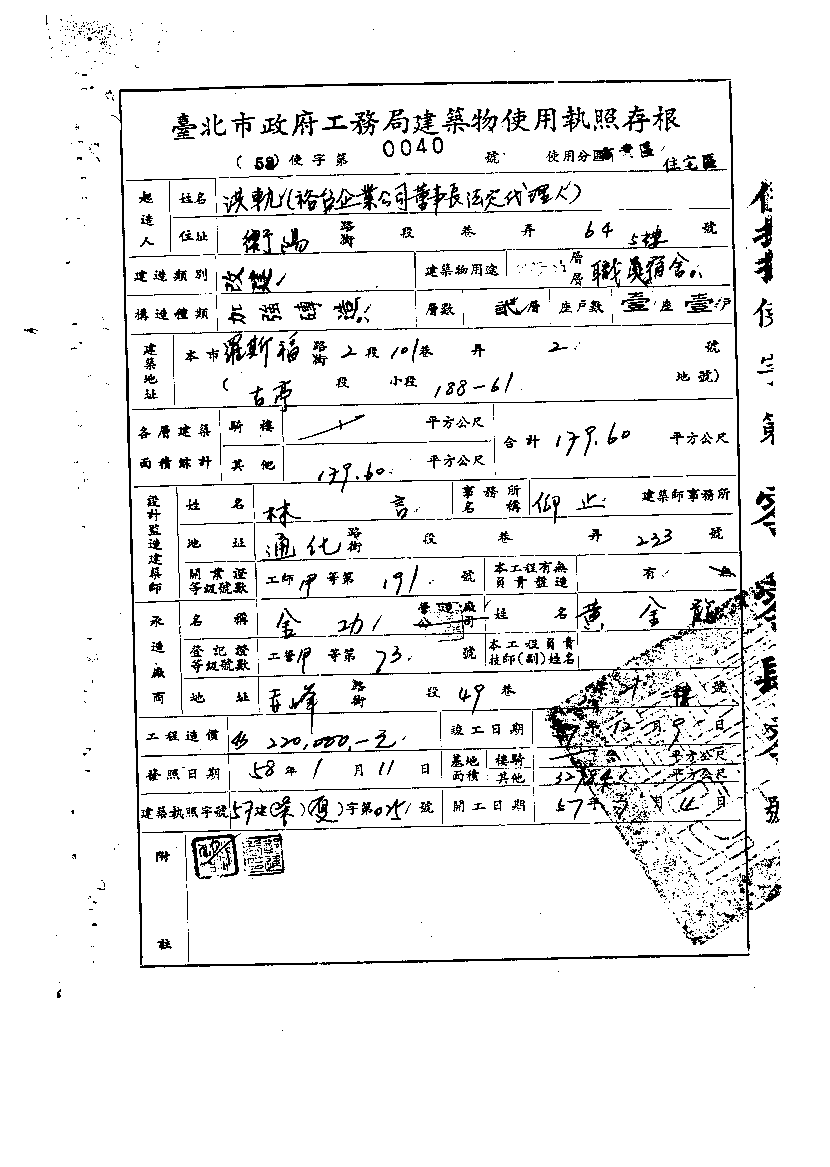 臺北市政府工務局建築物使用執照存根
(58)使字第 0040 號 使用分區 商業區 住宅區
起造人 姓名 洪軌(裕台企業公司董事長法定代理人)
住址 衡陽 路街 段 巷 弄 64 號
建造類別 改建 建築物用途 層 層 職員宿舍
構造種類 加強磚造 層數 貳層 座戶數 壹座壹戶
建築地址 本市 羅斯福 路街 2段 101巷 弄 2 號
(古亭 段 小段 188-61 地號)
各層建築面積総計 騎樓 平方公尺 合計 179.60 平方公尺
其他 179.60 平方公尺
設計監造建築師 姓名 林 言 事務所名稱 仰止 建築師事務所
地址 通化 路街 段 巷 弄 233 號
開業證等級號數 工師甲等第 191 號 本工程有無負責監造 有 無
承造廠商 名稱 金 功 營造廠公司 姓名 黃金龍
登記證等級號數 工營甲等第 73 號 本工程負責技師(副)姓名
地址 吉峰 路街 段 49 巷 21 號
工程造價 220,000,-元 竣工日期 年 12月9日
發照日期 58年1月11日 基地面積 騎樓 平方公尺
其他 平方公尺
建築執照字號 57建( )( )字第0251號 開工日期 57年 月 日
附註
使字第零零肆零號